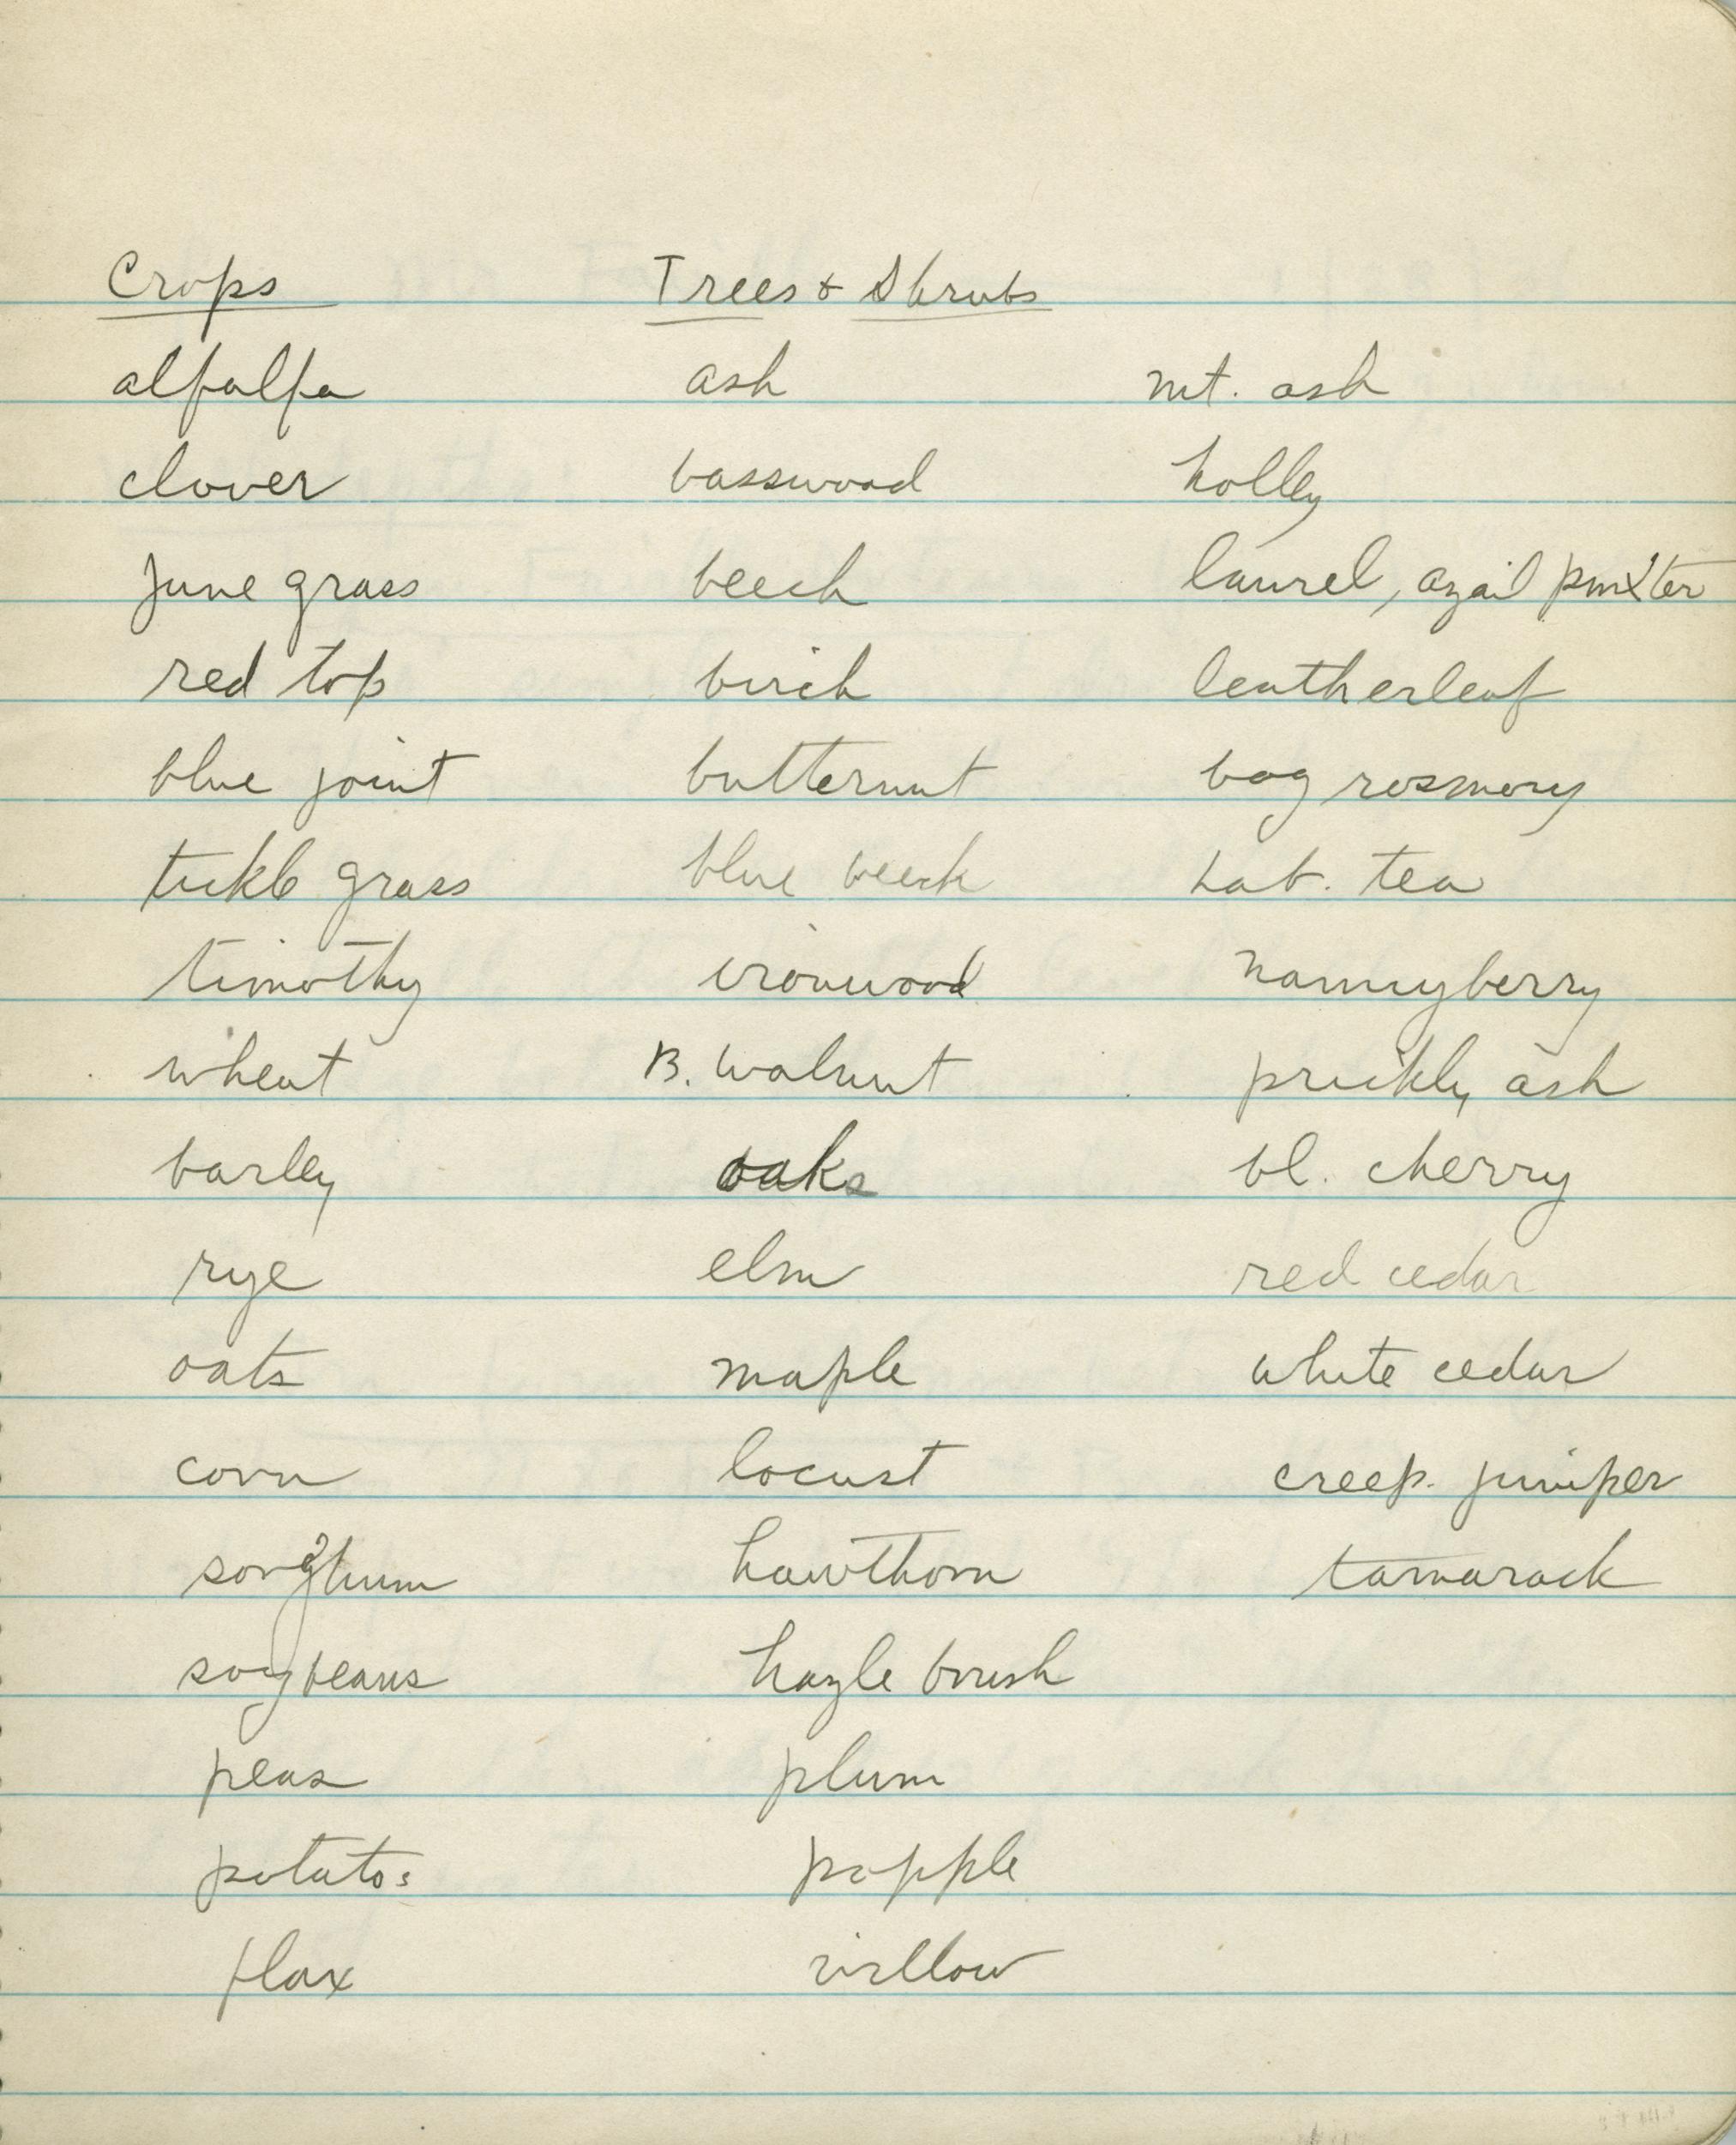 Crops
alfalfa
clover
June grass
red top
blue joint
tickle grass
timothy
wheat
barley
rye
oats
corn
sorghum
soybeans
peas
potatos
flax
Trees & Shrubs
ash
basswood
beech
birch
butternut
blue beech
ironwood
B. walnut
oaks
elm
maple
locust
hawthorn
hazle brush
plum
popple
willow
mt. ash
holley
laurel,
leatherleaf
bog rosmary
Lab. tea
nannyberry
prickly ash
bl. cherry
red cedar
white cedar
creep. juniper
tamarack